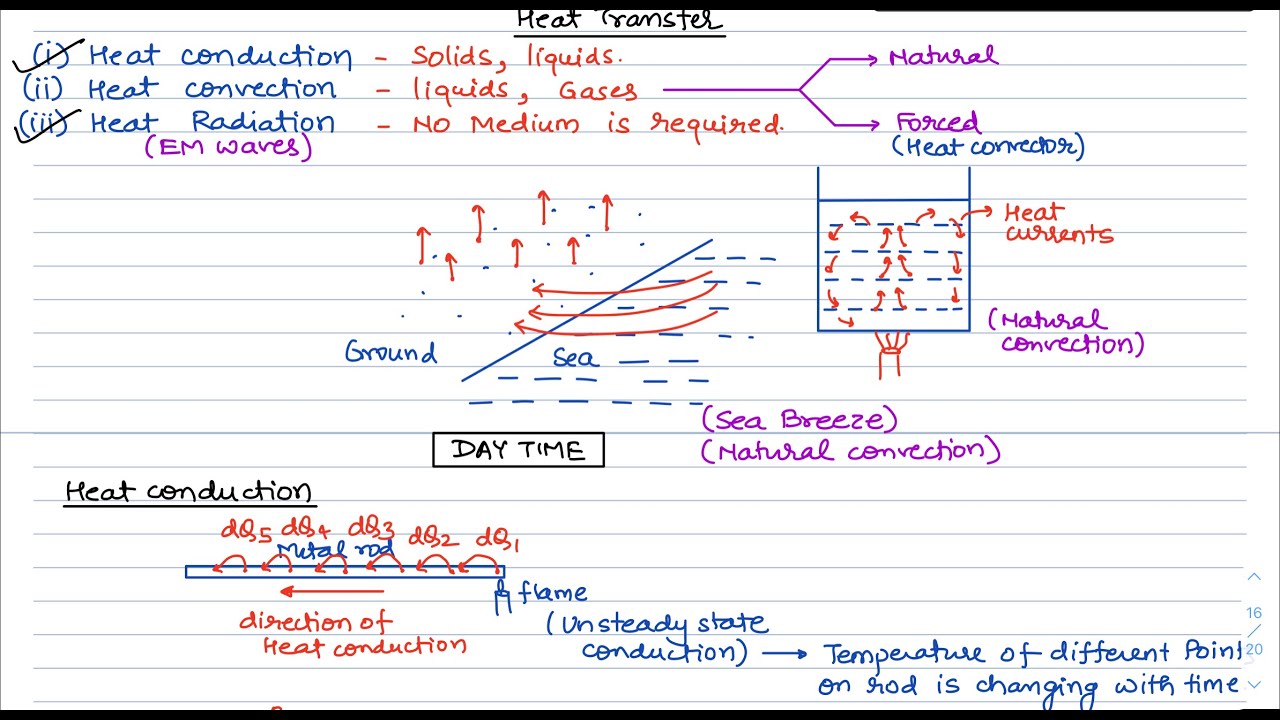 Heat Transfer
(i) Heat conduction - Solids, liquids.
(ii) Heat convection - liquids, Gases
(iii) Heat Radiation - NO Medium is required.
(EM waves)
Natural
Forced
(Heat convector)
Heat currents
(Natural convection)
Ground
Sea
(Sea Breeze)
(Natural convection)
DAY TIME
Heat conduction
dQ5 dQ4 dQ3 dQ2 dQ1
Metal rod
flame
direction of
Heat conduction
(Unsteady state
conduction) → Temperature of different Points
on rod is changing with time
16
/
20